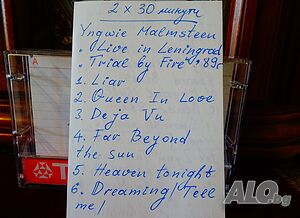 2 x 30 минути
Yngwie Malmsteen
"Live in Leningrad
"Trial by Fire" 89г
1. Liar
2. Queen In Love
3. Deja Vu
4. Far Beyond
the sun
5. Heaven tonight
6. Dreaming/Tell
me/
A
T
ALO.bg